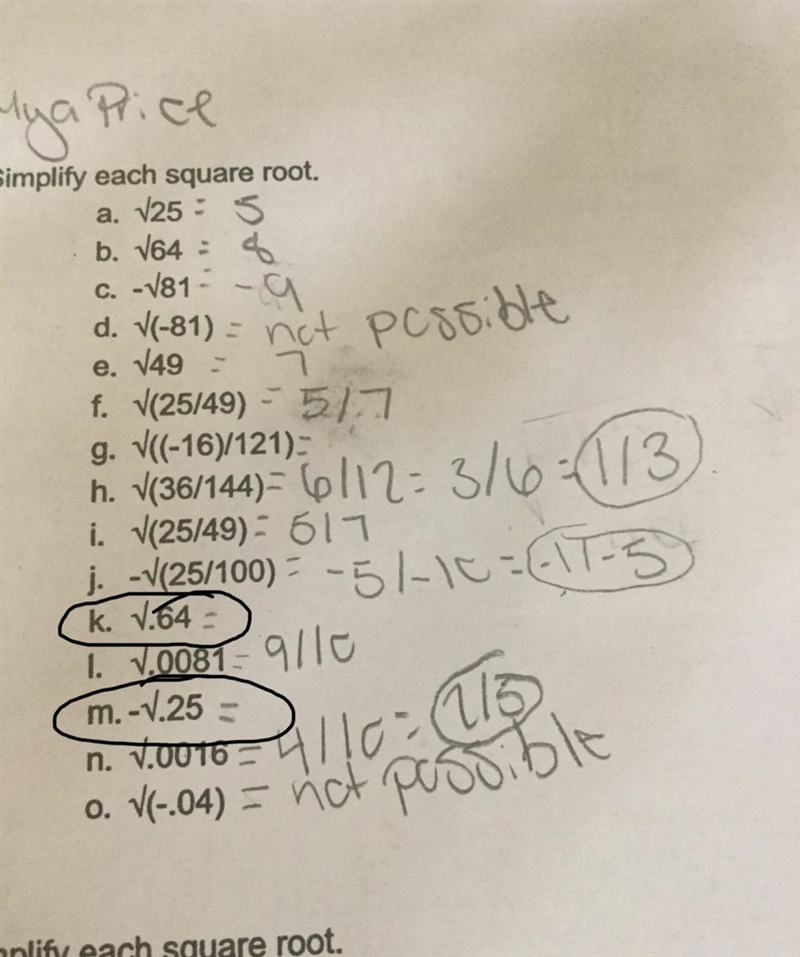 Mya Price
Simplify each square root.
a. √25 = 5
b. √64 = 8
c. -√81 = -9
d. √(-81) = not possible
e. √49 = 7
f. √(25/49) = 5/7
g. √((-16)/121)=
h. √(36/144)= 6/12 = 3/6 = 1/3
i. √(25/49) = 5/7
j. -√(25/100) = -5/-10 = -1/-5
k. √.64 =
l. √.0081 = 9/10
m. -√.25 =
n. √.0016 = 4/10 = 2/5
o. √(-.04) = not possible
mplify each square root.